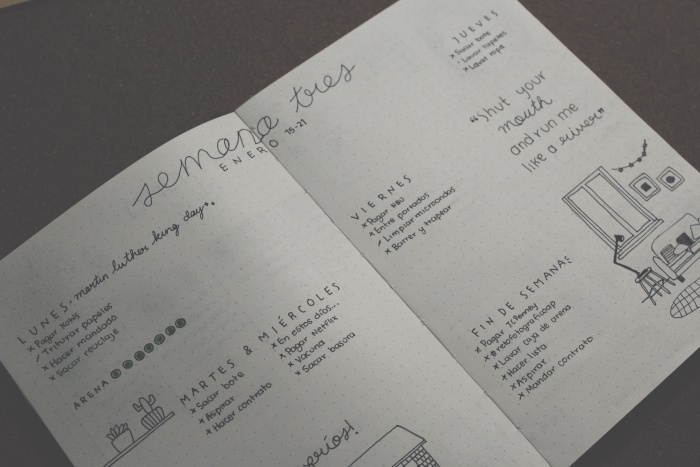 semana tres
ENERO 15-21
LUNES · martin luther king day
x Pagar Kohls
/ Triturar papeles
x Hacer mandado
x Sacar reciclaje
ARENA
MARTES & MIÉRCOLES
x Sacar bote
x Aspirar
x Hacer contrato
x En estos días...
x Pagar Netflix
x Vacuna
x Sacar basura
JUEVES
x Sacar bote
• Lavar tapetes
x Lavar ropa
"Shut your
mouth
and run me
like a river"
VIERNES
x Pagar
x Entre portados
/ Limpiar microondas
x Barrer y trapear
FIN DE SEMANA
x Pagar JCPenney
x #retofotograficoap
x Lavar caja de arena
x Hacer lista
x Aspirar
x Mandar contrato